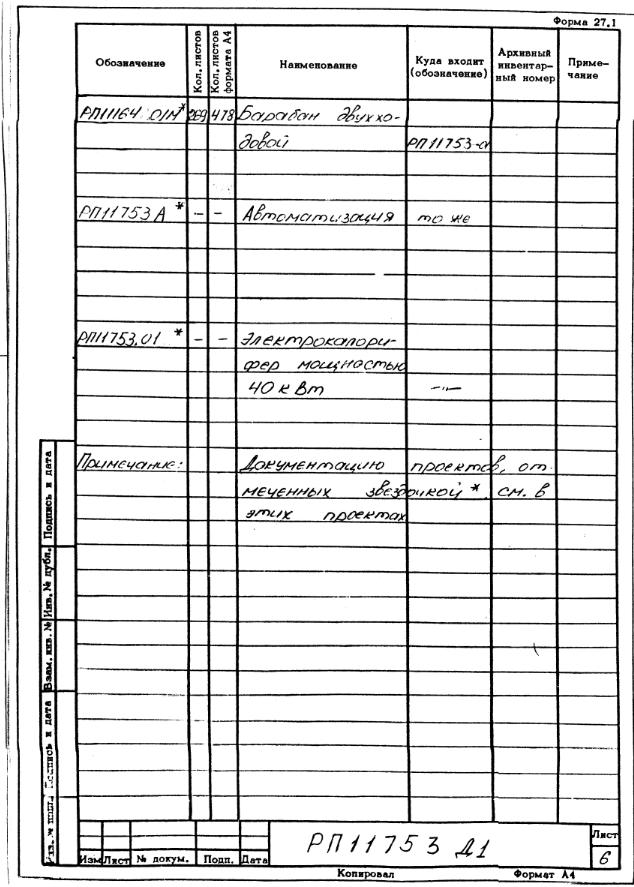 Форма 27.1
Обозначение
Кол. листов
Кол. листов формата А4
Наименование
Куда входит (обозначение)
Архивный инвентарный номер
Примечание
РП11164.01М* 269 478 Барабан двуххо-
довой РП11753-01
РП11753А* - - Автоматизация то же
РП11753.01 * - - Электрокалори-
фер мощностью
40 кВт -"-
Примечание: Документацию проектов, от
меченных звездочкой * см. в
этих проектах
Подпись и дата
Инв. № дубл.
Взам. инв. №
Подпись и дата
Инв. № подл.
РП11753 Д1
Лист
6
Изм Лист № докум. Подп. Дата
Копировал Формат А4